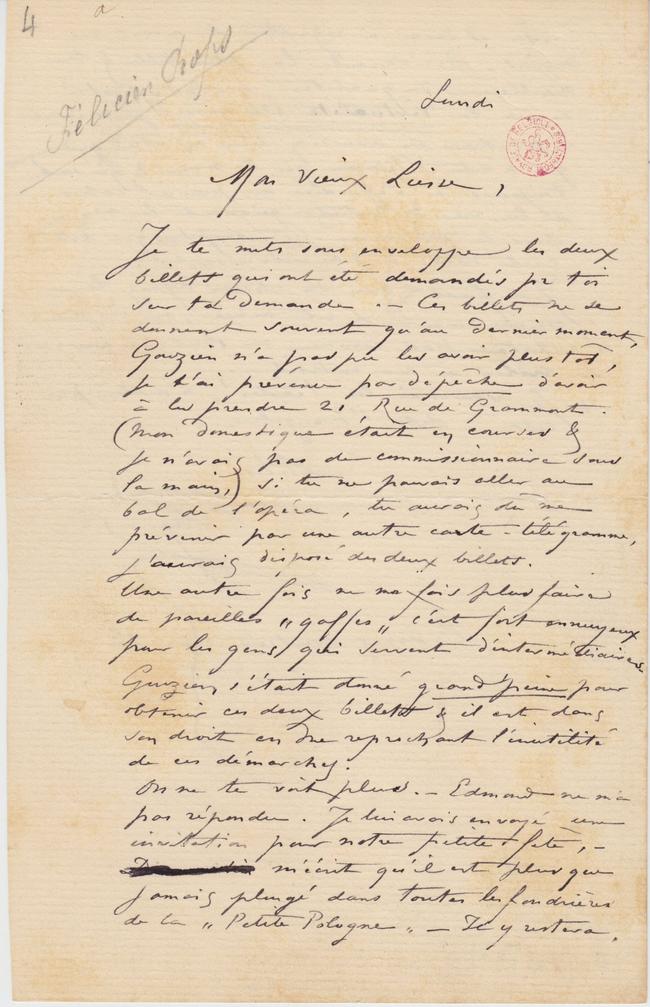 4
a
Félicien Rops
Lundi
Mon Vieux Liesse,
Je te mets sous enveloppe les deux
billets qui ont été demandés pr toi
sur ta demande. — Ces billets ne se
donnent souvent qu'au dernier moment,
Gouzien n'a pas pu les avoir plus tôt,
je t'ai prévenu par dépêche d'avoir
à les prendre 21 Rue de Grammont.
(Mon domestique était en courses &
je n'avais pas de commissionnaire sous
la main,) si tu ne pouvais aller au
bal de l'opéra, tu aurais dû me
prévenir par une autre carte-télégramme,
j'aurais disposé des deux billets.
Une autre fois ne me fais plus faire
de pareilles „gaffes" c'est fort ennuyeux
pour les gens qui servent d'intermédiaires.
Gouzien s'était donné grand peine pour
obtenir ces deux billets & il est dans
son droit en me reprochant l'inutilité
de ces démarches.
On ne te voit plus. — Edmond ne m'a
pas répondu. Je lui avais envoyé une
invitation pour notre petite fête, —
m'écrit qu'il est plus que
jamais plongé dans toutes les fondrières
de la „Petite Pologne" — Il y restera.